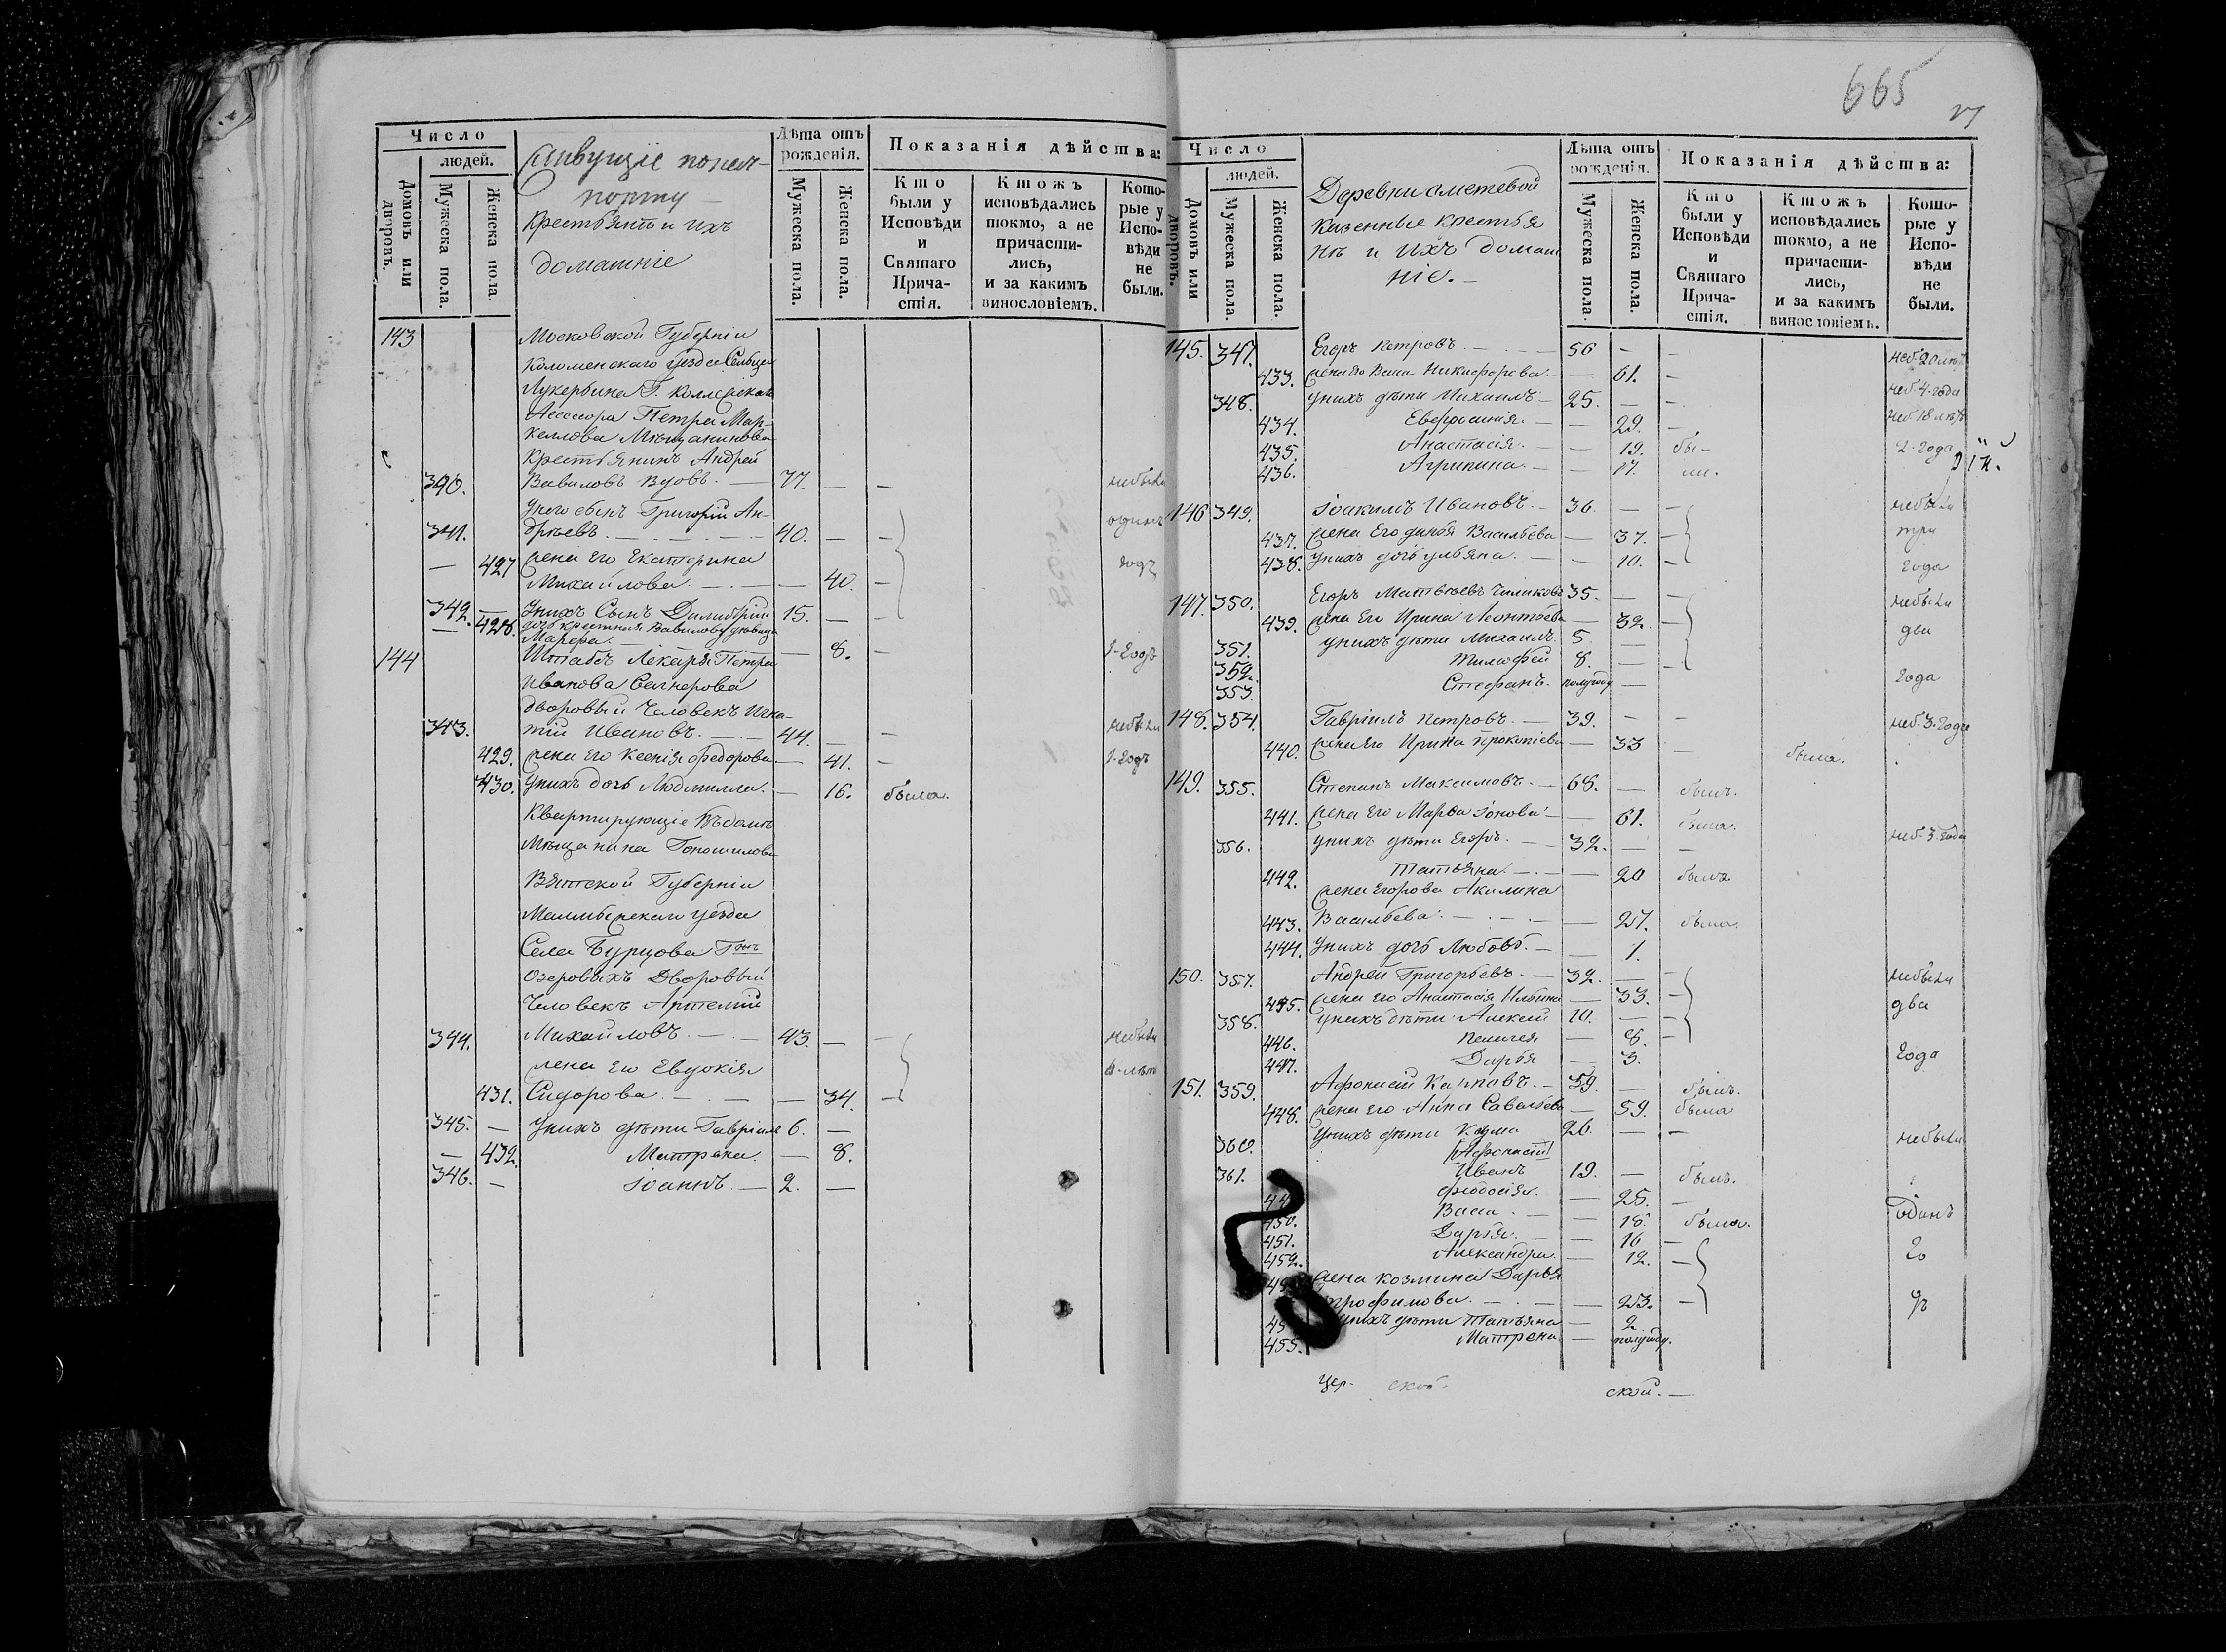 665
Число
людей.
Домовъ или дворовъ.
Мужеска пола.
Женска пола.
Живущіе
Крестьянъ и ихъ
домашніе
Лѣта отъ рожденія.
Мужеска пола.
Женска пола.
Показанія дѣйства:
Кто были у Исповѣди и Святаго Причастія.
Ктожъ исповѣдались токмо, а не причастились, и за какимъ винословіемъ.
Которые у Исповѣди не были.
143 Московской Губерніи
Коломенскаго уезда
Асессора Петра Мар-
келлова Мещанинова
Крестьянинъ Андрей
340. Вавиловъ вдовъ. — 77. — — небыли
Унего сынъ Григорій Ан- одинъ
341. дрѣевъ. — 40. — —
— 427 жена Его Екатерина годъ
Михайлова. — — 40. —
342. — Унихъ Сынъ Димитрій 15. — —
— 428. дочь крестная Вавилову девица
Марѳа. — 8. — 1-годъ
144 Штабъ Лекаря Петра
Иванова
дворовый Человекъ Игна-
343. тій Ивановъ. — 44. — — небыли
429. жена Его Ксенія Федорова — 41. — 1-годъ
430. Унихъ дочь Людмилла. — 16. была.
Квартирующіе Въдомѣ
Мещанина
Вятской Губерніи
уезда
Села Бурцова
Озеровыхъ Дворовый
Человекъ Артемій
344. Михайловъ. — 43. — — небыли
жена Его Евдокія
431. Сидорова. — — 34. —
345. — Унихъ дѣти Гавріилъ 6. —
— 432. Матрена. — 8.
346. — Іоаннъ — 2. —
Число
людей.
Домовъ или дворовъ.
Мужеска пола.
Женска пола.
Деревни
Казенные крестья
нѣ и ихъ домаш
ніе. —
Лѣта отъ рожденія.
Мужеска пола.
Женска пола.
Показанія дѣйства:
Кто были у Исповѣди и Святаго Причастія.
Ктожъ исповѣдались токмо, а не причастились, и за какимъ винословіемъ.
Которые у Исповѣди не были.
145. 347. Егоръ Петровъ. — 56 — — неб. 20 лѣтъ
433. жена Его Васса Никифорова. — 61. — неб. 4. года
348. унихъ дѣти Михаилъ — 25. — — неб. 18 лѣтъ
434. Евфросинія. — — 29. —
435. Анастасія. — — 19. бы- 2. года
436. Агрипина. — — 17. ли.
146 349. Іоакимъ Ивановъ. — 36. — — небыли
437. жена Его Дарья Васильева — 37. — три
438. Унихъ дочь Ульяна. — — 10. — года
147. 350. Егоръ Матвѣевъ 35. — — небыли
439. жена Его Ирина Леонтьева — 32. — два
351. унихъ дѣти Михаилъ. 5. —
352. Тимофей 8. — — года
353. Стефанъ. полугоду —
148. 354. Гавріилъ Петровъ. — 39. — — неб. 3. года
440. жена Его Ирина Прокопіева — 33 — была.
149. 355. Степанъ Максимовъ. — 68. — былъ.
441. жена Его Марѳа Іонова — — 61. была.
356. унихъ дѣти Егоръ. — 32. — — неб. 3. года
442. Татьяна. — — 20 была
жена Егорова Акилина
443. Васильева. — — 27. была.
444. Унихъ дочь Любовь. — — 1.
150. 357. Андрей Григорьевъ. — 32. — — небыли
445. жена Его Анастасія Ильина — 33. — два
358. унихъ дѣти Алексѣй 10. — —
446. Пелагея — 8. —
447. Дарья — 3. года
151. 359. Афонасій Карповъ. — 59. — былъ.
448. жена Его Анна Савельева — 59. была
360. Унихъ дѣти Козма 26. — — небыли
[Афонасій]
361. Иванъ 19. — былъ.
Феодосія. — 25. —
450. Васса. — — 18. была. одинъ
451. Дарья. — — 16 —
452. Александра. — 12. — го
жена Козмина Дарья
Трофимова. — — 23. — дъ
унихъ дѣти Татьяна — 2
455. Матрена — полугоду.
ской. ской. —